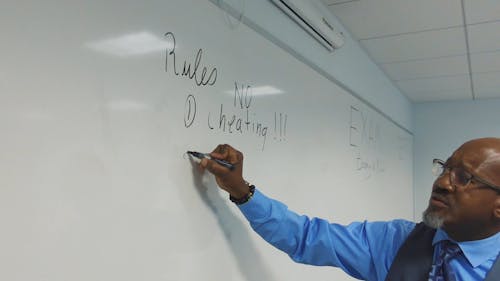 Rules
NO
① cheating!!!
EXAM